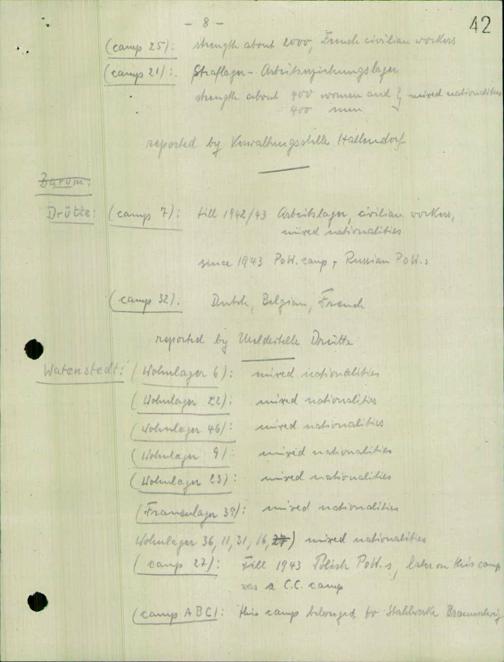 - 8 -
42
(camp 25): strength about 2000, French civilian workers
(camp 21): Straflager - Arbeitserziehungslager
strength about 900 women and } mixed nationalities
400 men
reported by Verwaltungsstelle Hallendorf
Barum:
Drütte: (camp 7): till 1942/43 Arbeitslager, civilian workers,
mixed nationalities
since 1943 PoW. camp, Russian PoW.s
(camp 32): Dutch, Belgian, French
reported by Meldestelle Drütte
Watenstedt: (Wohnlager 6): mixed nationalities
(Wohnlager 22): mixed nationalities
(Wohnlager 46): mixed nationalities
(Wohnlager 9): mixed nationalities
(Wohnlager 23): mixed nationalities
(Frauenlager 38): mixed nationalities
Wohnlager 36, 11, 31, 16, 27) mixed nationalities
(camp 27): till 1943 Polish PoW.s, later on this camp
was a C.C. camp
(camp ABC): this camp belonged to Stahlwerke Braunschweig